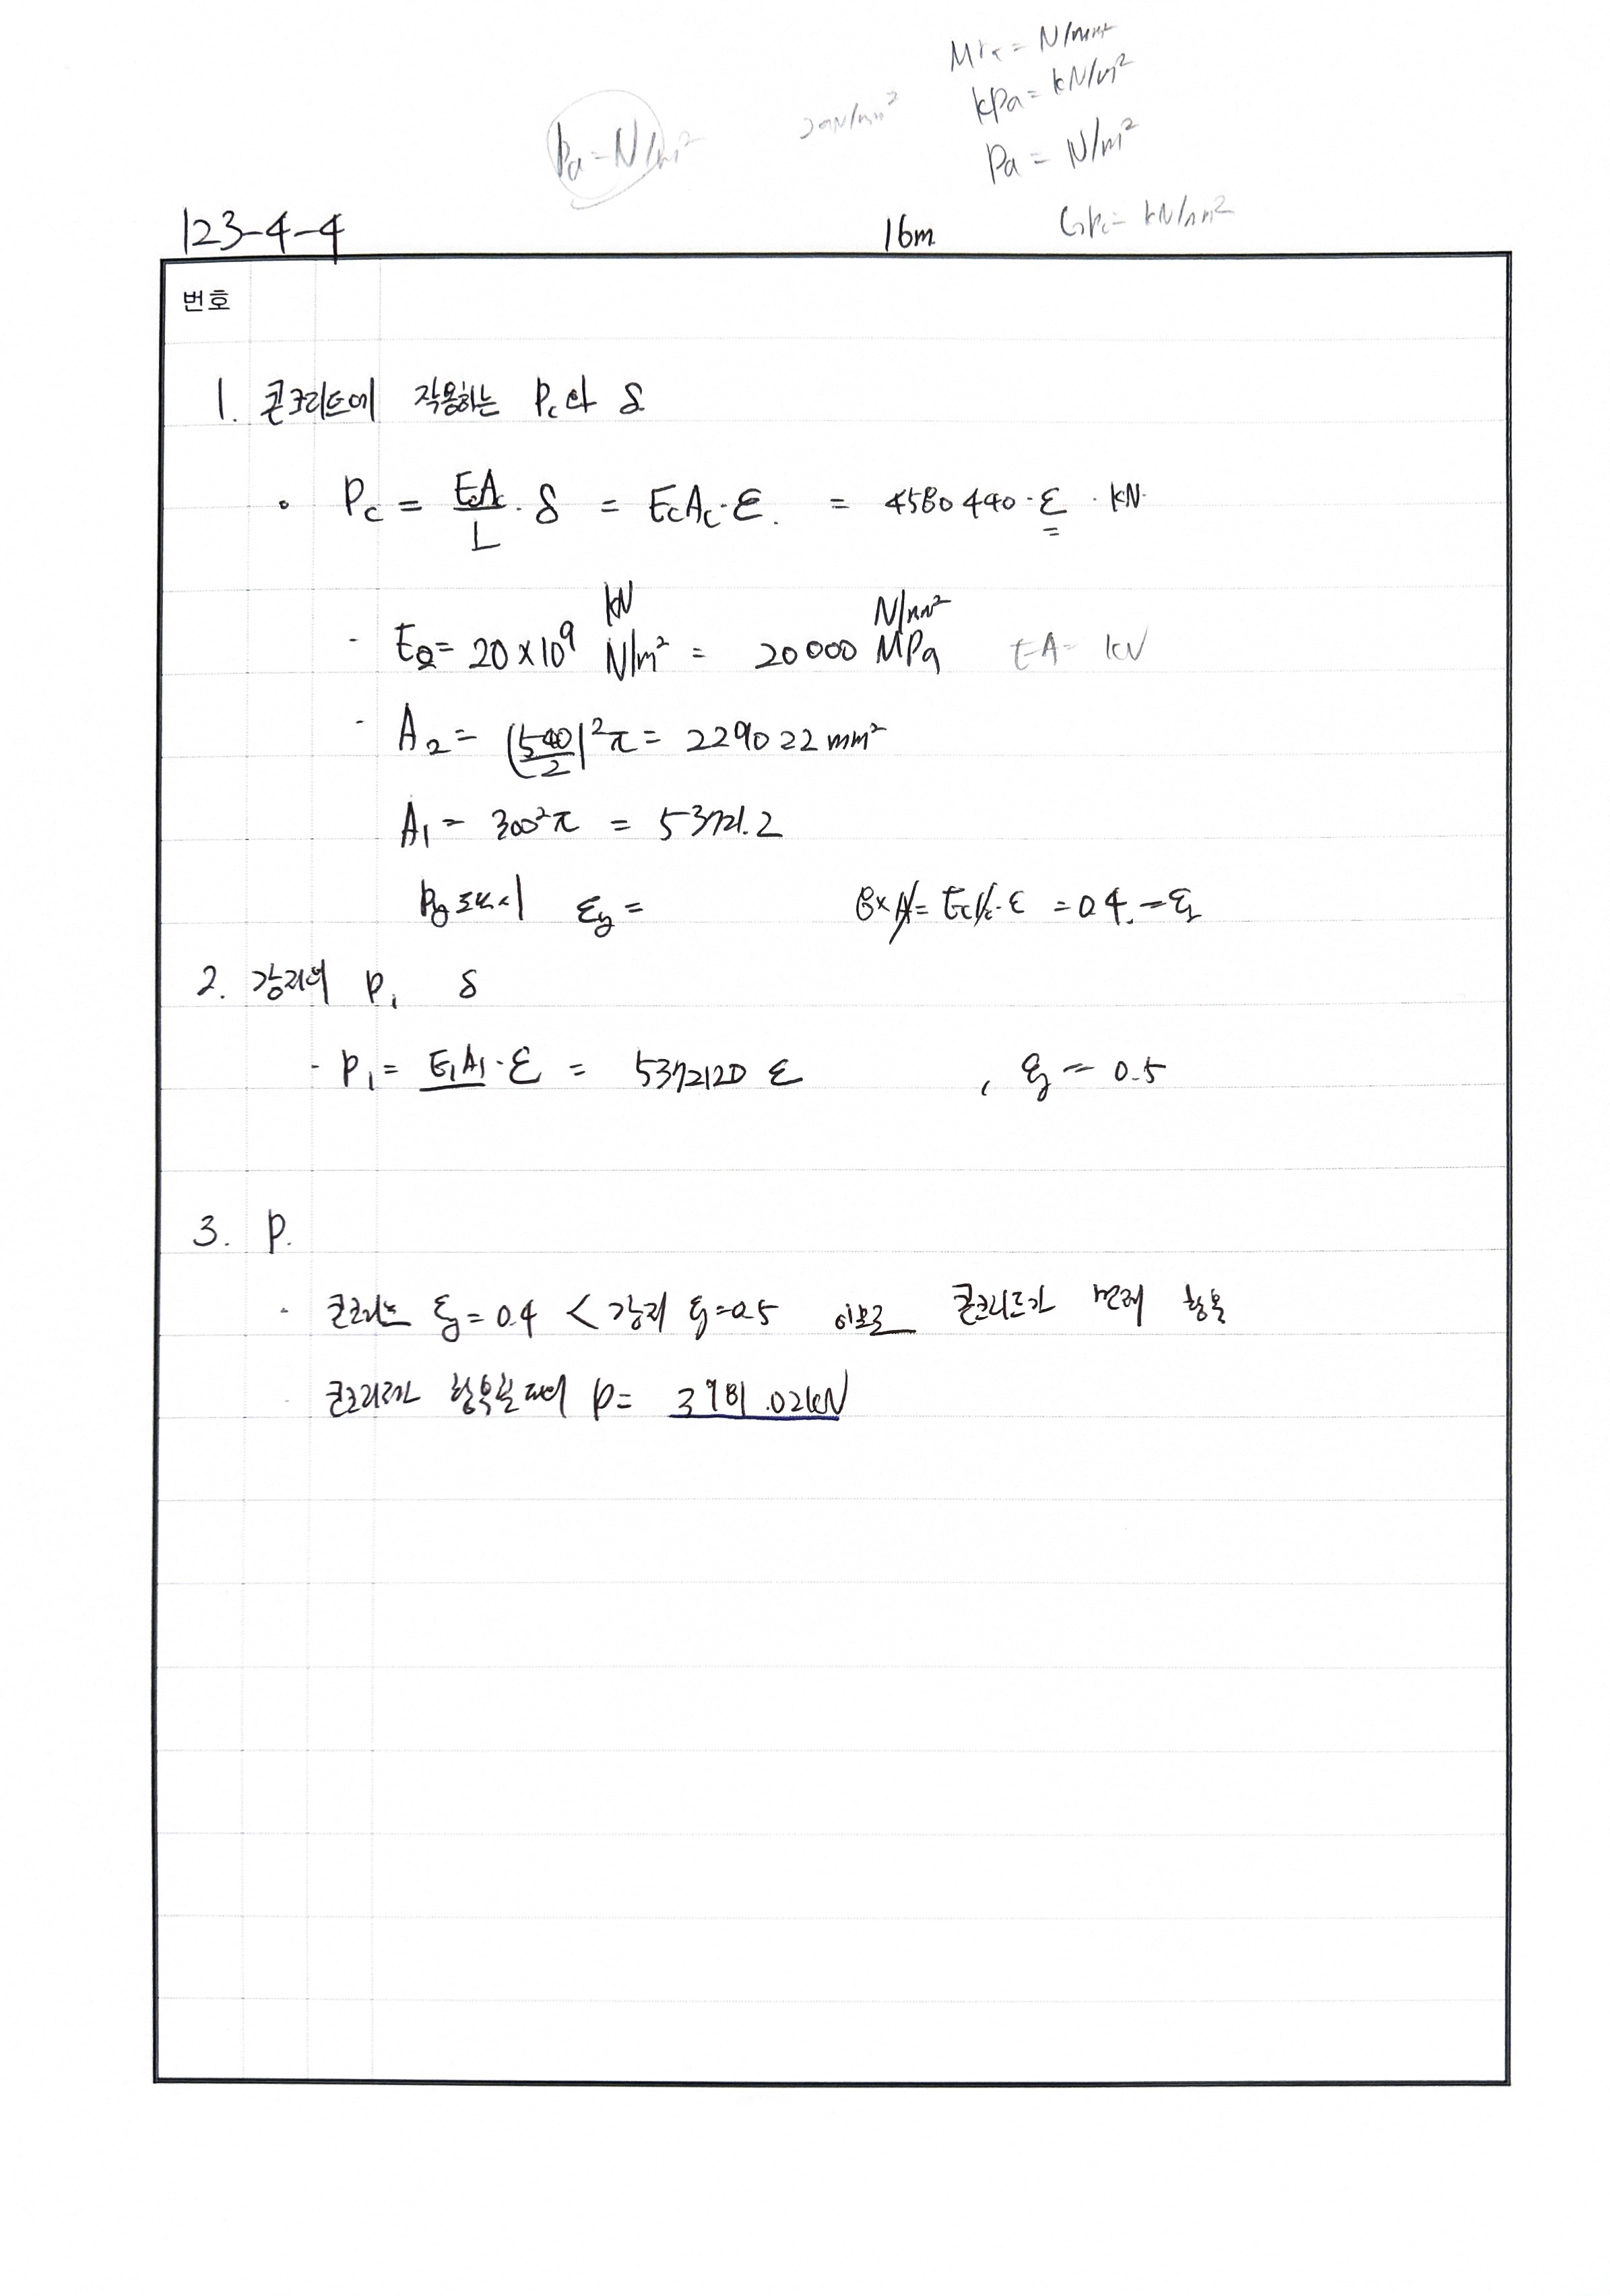 MPa = N/mm²
kPa = kN/m²
Pa = N/m²
Pa = N/m²
20N/mm²
GPa = kN/mm²
123-4-4
16m
번호
1. 콘크리트에 작용하는 Pc와 δ
• Pc = EcAc/L · δ = EcAc·ε. = 4580440·ε · kN
- E2 = 20×10⁹ N/m² = 20000 MPa
kN
N/mm²
EA = kN
- A2 = (540/2)²π = 229022 mm²
A1 = 300²π = 53721.2
εy =
= EcAc·ε = 0.4.
2. 강재의 P1 δ
- P1 = E1A1·ε = 5372120 ε , εy = 0.5
3. P.
· 콘크리트 εy = 0.4 < 강재 εy = 0.5 이므로 콘크리트가 먼저 항복
· 콘크리트가 항복할 때의 P = 3981.02kN